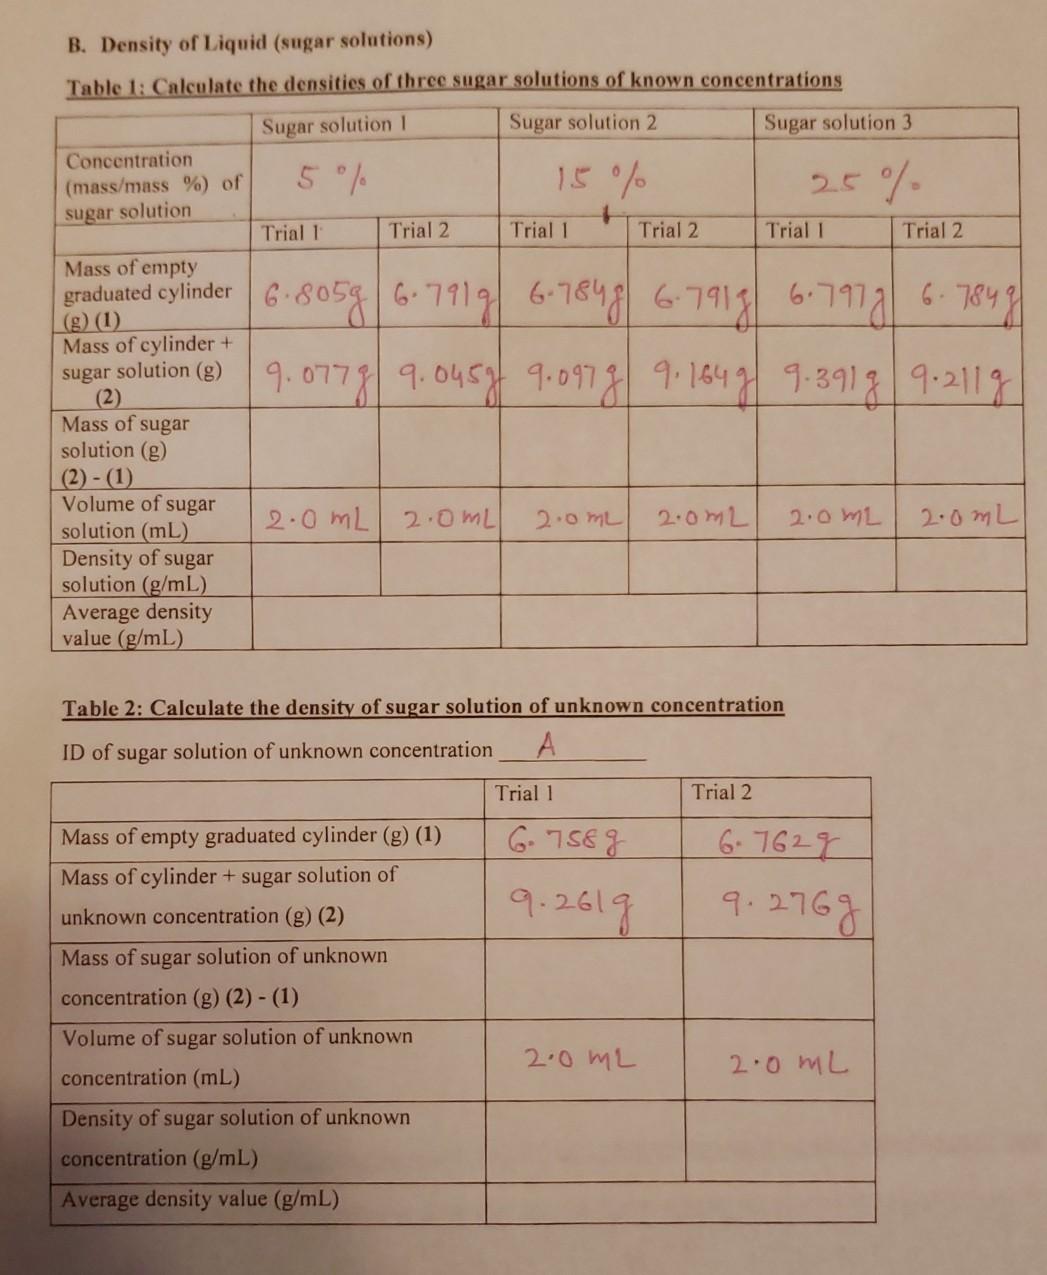 B. Density of Liquid (sugar solutions)
Table 1: Calculate the densities of three sugar solutions of known concentrations
Sugar solution 1 Sugar solution 2 Sugar solution 3
Concentration
(mass/mass %) of
sugar solution
5 % 15 % 25 %
Trial 1 Trial 2 Trial 1 Trial 2 Trial 1 Trial 2
Mass of empty
graduated cylinder
(g) (1)
6.805g 6.791g 6.784g 6.791g 6.797g 6.784g
Mass of cylinder +
sugar solution (g)
(2)
9.077g 9.045g 9.097g 9.164g 9.391g 9.211g
Mass of sugar
solution (g)
(2) - (1)
Volume of sugar
solution (mL)
2.0 mL 2.0mL 2.0 mL 2.0mL 2.0 mL 2.0mL
Density of sugar
solution (g/mL)
Average density
value (g/mL)
Table 2: Calculate the density of sugar solution of unknown concentration
ID of sugar solution of unknown concentration A
Trial 1 Trial 2
Mass of empty graduated cylinder (g) (1) 6.758g 6.762g
Mass of cylinder + sugar solution of
unknown concentration (g) (2)
9.261g 9.276g
Mass of sugar solution of unknown
concentration (g) (2) - (1)
Volume of sugar solution of unknown
concentration (mL)
2.0 mL 2.0 mL
Density of sugar solution of unknown
concentration (g/mL)
Average density value (g/mL)